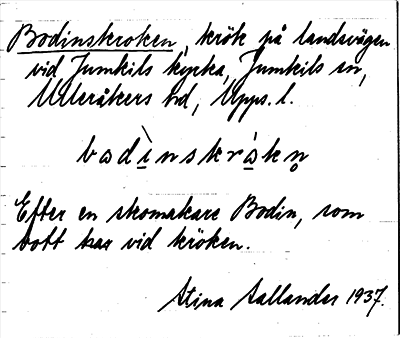 Bodinskroken, krök på landsvägen
vid Jumkils kyrka, Jumkils sn,
Ulleråkers hd, Upps. l.
bɷdìnskrɷ̀kn̥
Efter en skomakare Bodin, som
bott har vid kröken.
Stina Sallander 1937.